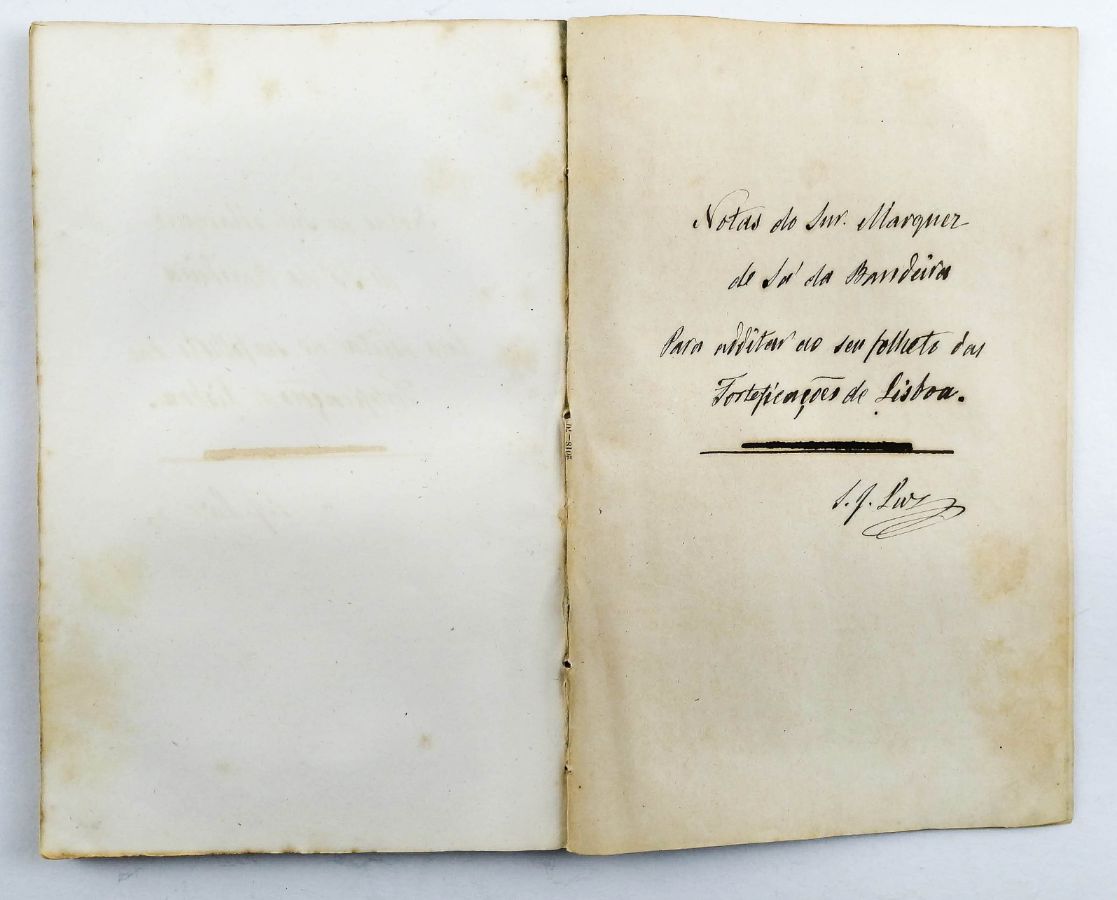 Notas do Snr. Marquez
de Sá da Bandeira
Para additar ao seu folheto das
Forteficações de Lisboa.
S. J. Luz